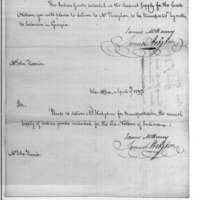 The Indian Goods, intended as the annual supply for the Creek
Nation, you will please to deliver to Mr. Hodgdon, to be transported by water
to Colerain in Georgia.
James McHenry
Samuel Hodgdon
Mr. John Harris
War Office, April 7, 1797
Sir,
Please to deliver Mr. Hodgdon for transportation, the annual
supply of Indian goods intended for the Six Nations of Indians
James McHenry
Samuel Hodgdon
Mr. John Harris